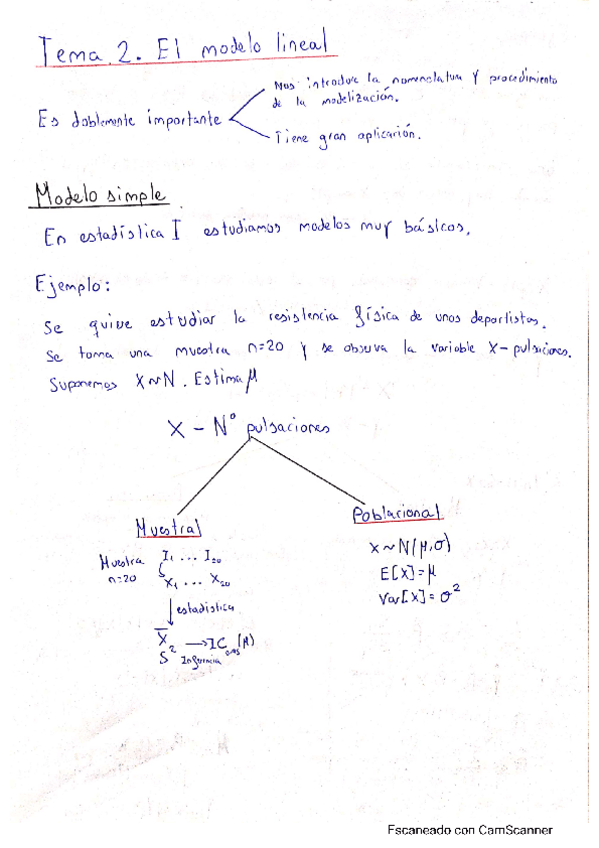 Tema 2. El modelo lineal
Nos introduce la nomenclatura y procedimiento
de la modelización.
Es doblemente importante
Tiene gran aplicación.
Modelo simple
En estadística I estudiamos modelos muy básicos.
Ejemplo:
Se quiere estudiar la resistencia física de unos deportistas.
Se toma una muestra n=20 y se observa la variable X-pulsaciones.
Suponemos X~N. Estima μ
X - Nº pulsaciones
Muestral
Poblacional
Muestra I₁ ... I₂₀
n=20 X₁ ... X₂₀
estadística
X̄
S² → IC (μ)
Inferencia
X~N(μ,σ)
E[X]=μ
Var[X]=σ²
Escaneado con CamScanner